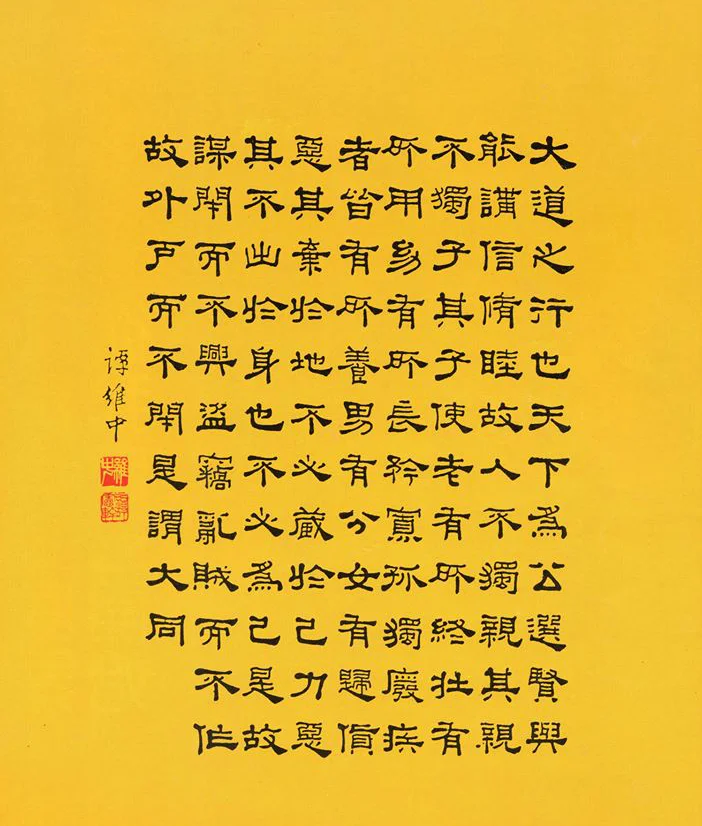 大道之行也天下為公選賢與
能講信脩睦故人不獨親其親
不獨子其子使老有所終壯有
所用幼有所長矜寡孤獨廢疾
者皆有所養男有分女有歸貨
惡其棄於地不必藏於己力惡
其不出於身也不必為己是故
謀閉而不興盜竊亂賊而不作
故外戶而不閉是謂大同
譚維中